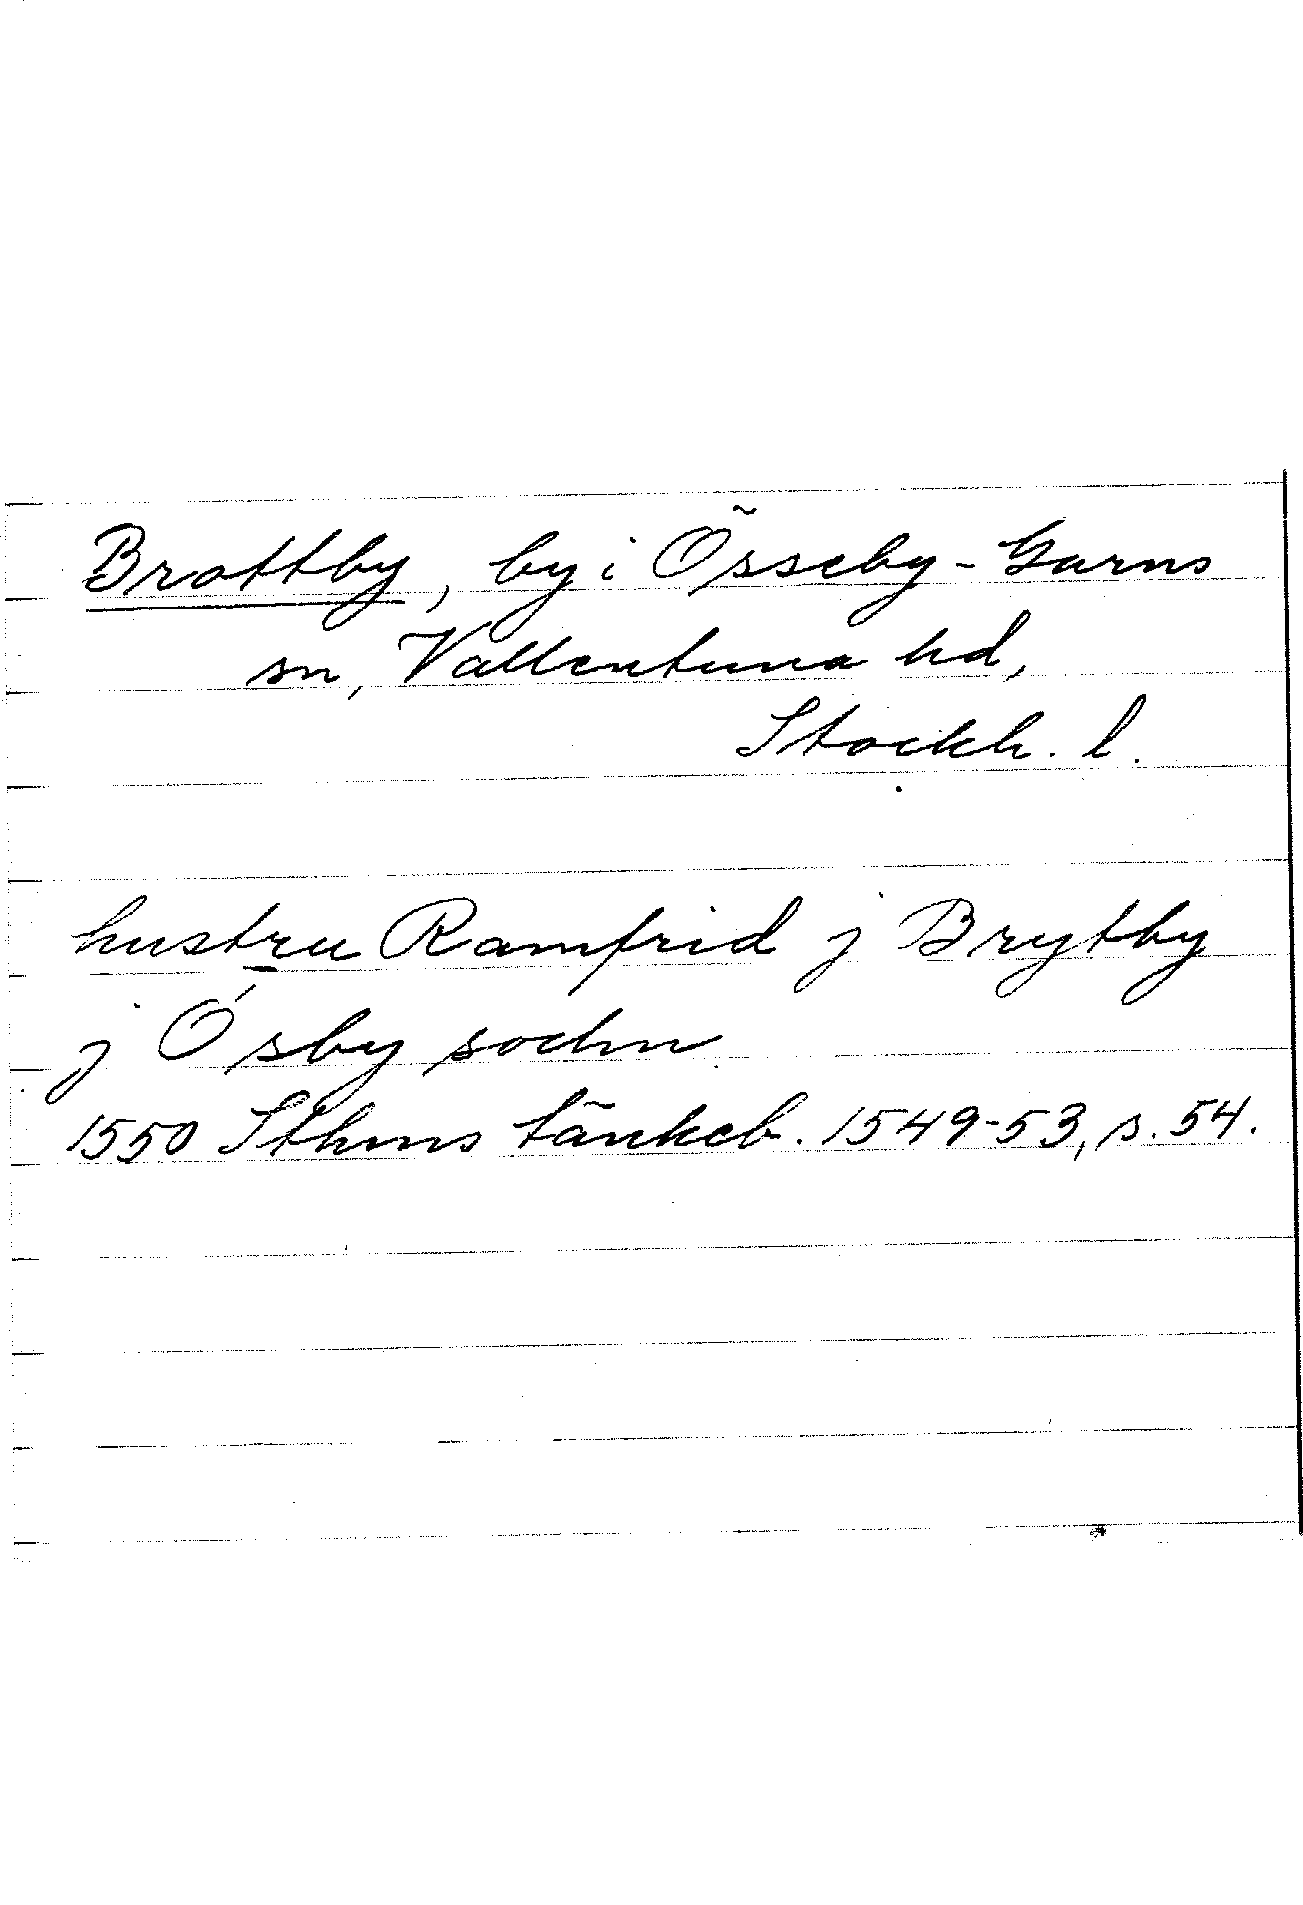 Brottby, by i Össeby-Garns
sn, Vallentuna hd,
Stockh. l.
hustru Ramfrid j Brytby
j Ósby sochn
1550 Sthms tänkeb. 1549-53, s. 54.